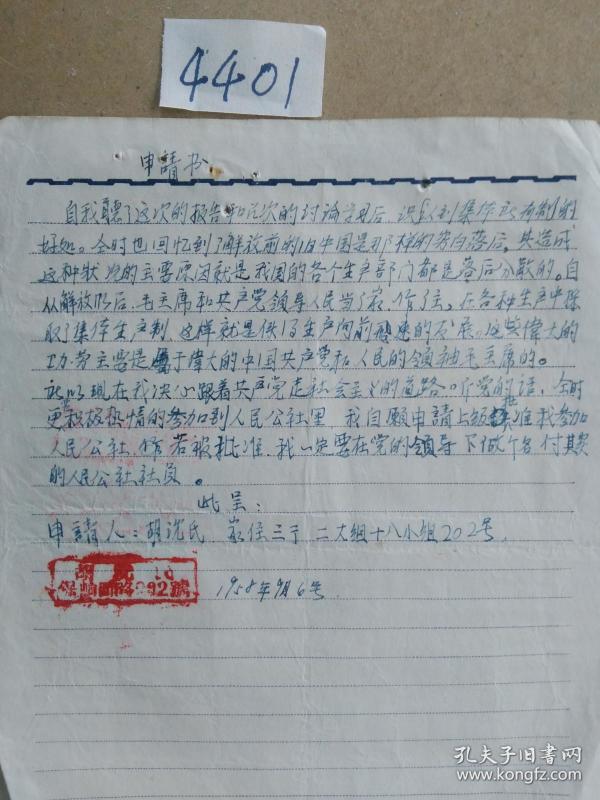 4401
申請书
自我聽了这次的报告和几次的讨论学习后，识认到集体所有制的
好处。全时也回忆到了解放前的旧中国是那样的穷白落后，其造成
这种状况的主要原因就是我国的各个生产部门都是落后分散的。自
从解放以后，毛主席和共产党领导人民当了家，作了主。在各种生产中採
取了集体生产制，这样就是使生产向前迅速的发展。这些偉大的
功劳主要是属于偉大的中国共产党和人民的领袖毛主席的。
所以现在我决心跟着共产党走社会主义的道路，听党的话，全时
更积极热情的参加到人民公社里，我自願申請上级批准我参加
人民公社，倘若被批准，我一定要在党的领导下做个名付其实
的人民公社社员。
此呈：
申請人：胡沈氏 家住三于二大组十八小组202号。
胡
保 路202號
1958年9月6号
孔夫子旧书网
www.kongfz.com